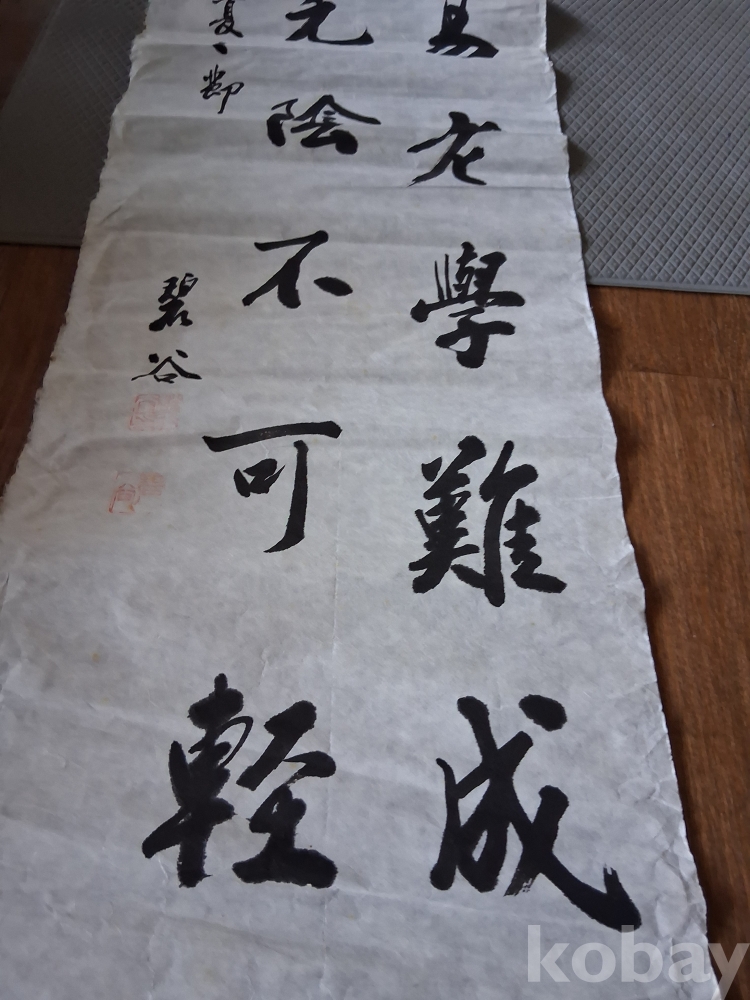 易老學難成
光陰不可輕
夏、鄭
碧谷
kobay